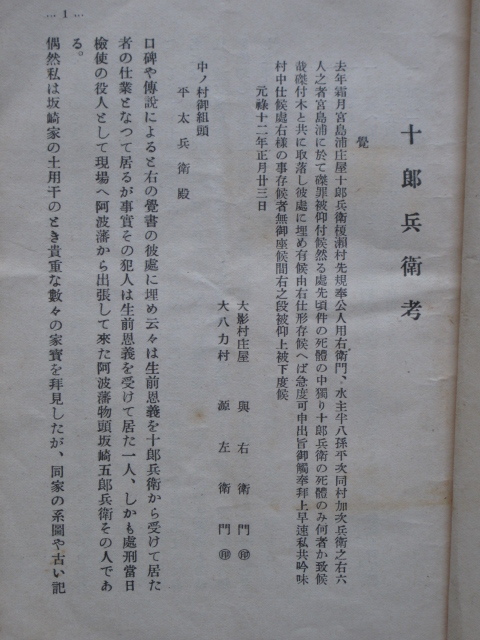 … 1 …
十郎兵衛考
覺
去年霜月宮島浦庄屋十郎兵衛榎瀬村先規奉公人用右衛門、水主半八孫平次同村加次兵衛之右六
人之者宮島浦に於て磔罪被仰付候然る處先頃件の死體の中獨り十郎兵衛の死體のみ何者か致候
哉磔付木と共に取落し彼處に埋め有候由右仕形存候へば急度可申出旨御觸奉拜上早速私共吟味
村中仕候處右樣の事存候者無御座候間右之段被仰上被下度候
元祿十二年正月廿三日
大影村庄屋 與右衛門㊞
大八力村 源左衛門㊞
中ノ村御組頭
平太兵衛殿
口碑や傳說によると右の覺書の彼處に埋め云々は生前恩義を十郎兵衛から受けて居た
者の仕業となつて居るが事實その犯人は生前恩義を受けて居た一人、しかも處刑當日
檢使の役人として現場へ阿波藩から出張して來た阿波藩物頭坂崎五郎兵衛その人であ
る。
偶然私は坂崎家の土用干のとき貴重な數々の家寶を拜見したが、同家の系圖や古い記